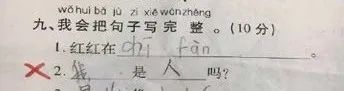 wǒ huì bǎ jù zi xiě wánzhěng
九、我会把句子写完整。(10分)
1. 红红在 chī fàn 。
2. 我 是 人 吗?